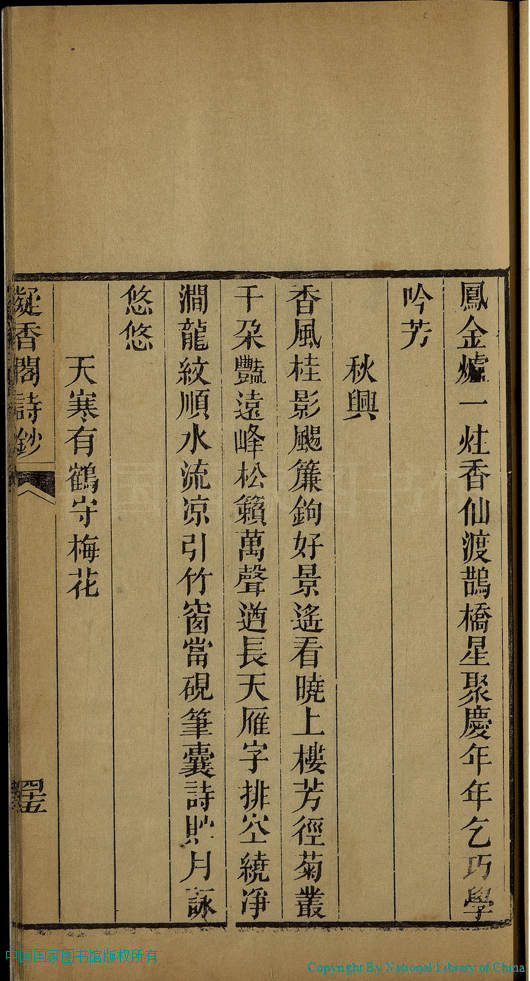 鳳金爐一炷香仙渡鵲橋星聚慶年年乞巧學
吟芳
秋興
香風桂影颺簾鉤好景遙看曉上樓芳徑菊叢
千朶豔遠峰松籟萬聲遒長天雁字排空繞淨
澗龍紋順水流凉引竹窗當硯筆囊詩貯月詠
悠悠
天寒有鶴守梅花
凝香閣詩鈔
中国国家图书馆版权所有
Copyright By National Library of China